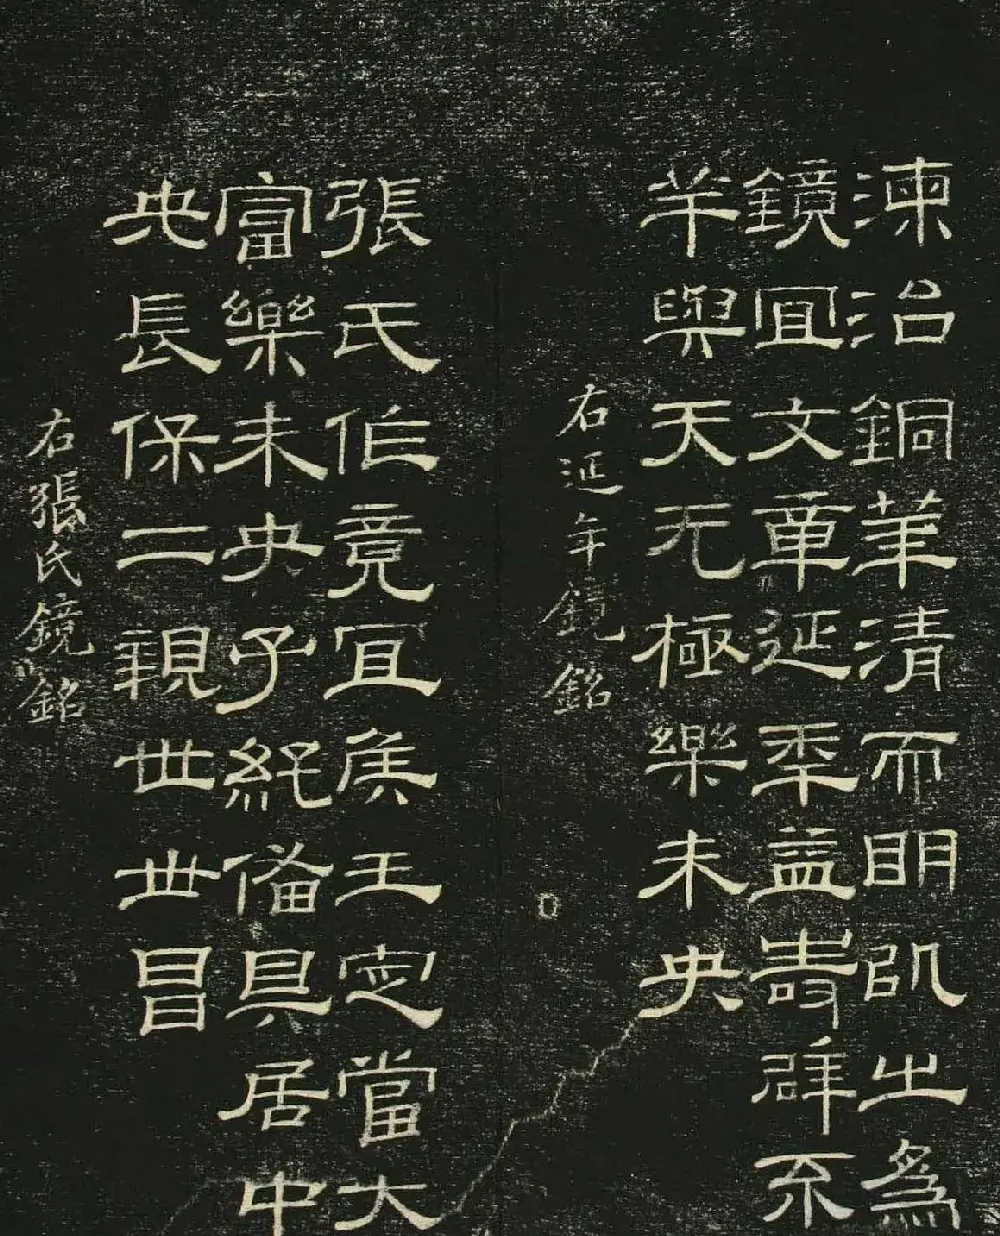 湅治銅華清而明以之為
鏡宜文章延年益壽辟不
羊與天无極樂未央
右延年鏡銘
張氏作竟宜侯王家當大
富樂未央子孫備具居中
央長保二親世世昌
右張氏鏡銘